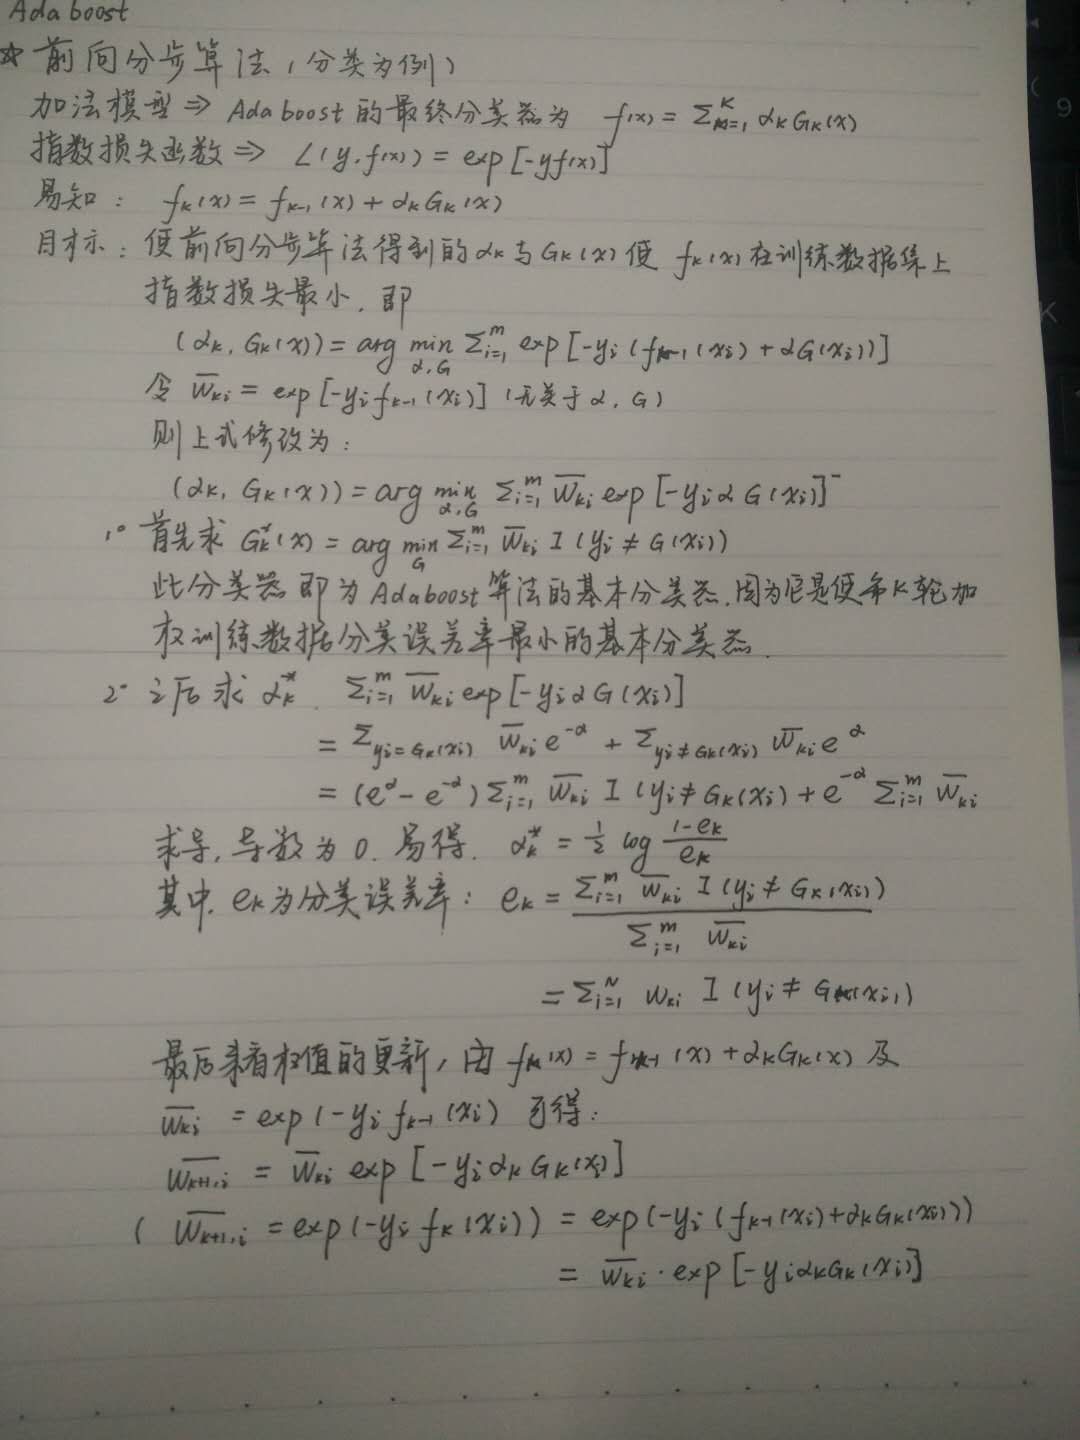 Adaboost
☆ 前向分步算法（分类为例）
加法模型 ⇒ Adaboost的最终分类器为 f(x) = Σ_{k=1}^K α_k G_k(x)
指数损失函数 ⇒ L(y, f(x)) = exp[-yf(x)]
易知： f_k(x) = f_{k-1}(x) + α_k G_k(x)
目标：使前向分步算法得到的α_k与G_k(x)使 f_k(x)在训练数据集上
指数损失最小，即
(α_k, G_k(x)) = arg min_{α,G} Σ_{i=1}^m exp[-y_i(f_{k-1}(x_i) + αG(x_i))]
令 w̄_{ki} = exp[-y_i f_{k-1}(x_i)] (无关于α, G)
则上式修改为：
(α_k, G_k(x)) = arg min_{α,G} Σ_{i=1}^m w̄_{ki} exp[-y_i α G(x_i)]
1° 首先求 G_k^*(x) = arg min_G Σ_{i=1}^m w̄_{ki} I(y_i ≠ G(x_i))
此分类器即为Adaboost算法的基本分类器，因为它是使第K轮加
权训练数据分类误差率最小的基本分类器.
2° 之后求 α_k^*. Σ_{i=1}^m w̄_{ki} exp[-y_i α G(x_i)]
= Σ_{y_i=G_k(x_i)} w̄_{ki} e^{-α} + Σ_{y_i≠G_k(x_i)} w̄_{ki} e^α
= (e^α - e^{-α}) Σ_{i=1}^m w̄_{ki} I(y_i ≠ G_k(x_i) + e^{-α} Σ_{i=1}^m w̄_{ki}
求导，导数为0. 易得. α_k^* = 1/2 log (1-e_k)/e_k
其中，e_k为分类误差率： e_k = Σ_{i=1}^m w̄_{ki} I(y_i ≠ G_k(x_i)) / Σ_{i=1}^m w̄_{ki}
= Σ_{i=1}^N w_{ki} I(y_i ≠ G_k(x_i))
最后来看权值的更新，由 f_k(x) = f_{k-1}(x) + α_k G_k(x) 及
w̄_{ki} = exp(-y_i f_{k-1}(x_i) 可得：
w̄_{k+1,i} = w̄_{ki} exp[-y_i α_k G_k(x_i)]
( w̄_{k+1,i} = exp(-y_i f_k(x_i)) = exp(-y_i(f_{k-1}(x_i) + α_k G_k(x_i)))
= w̄_{ki} · exp[-y_i α_k G_k(x_i)]
9
K